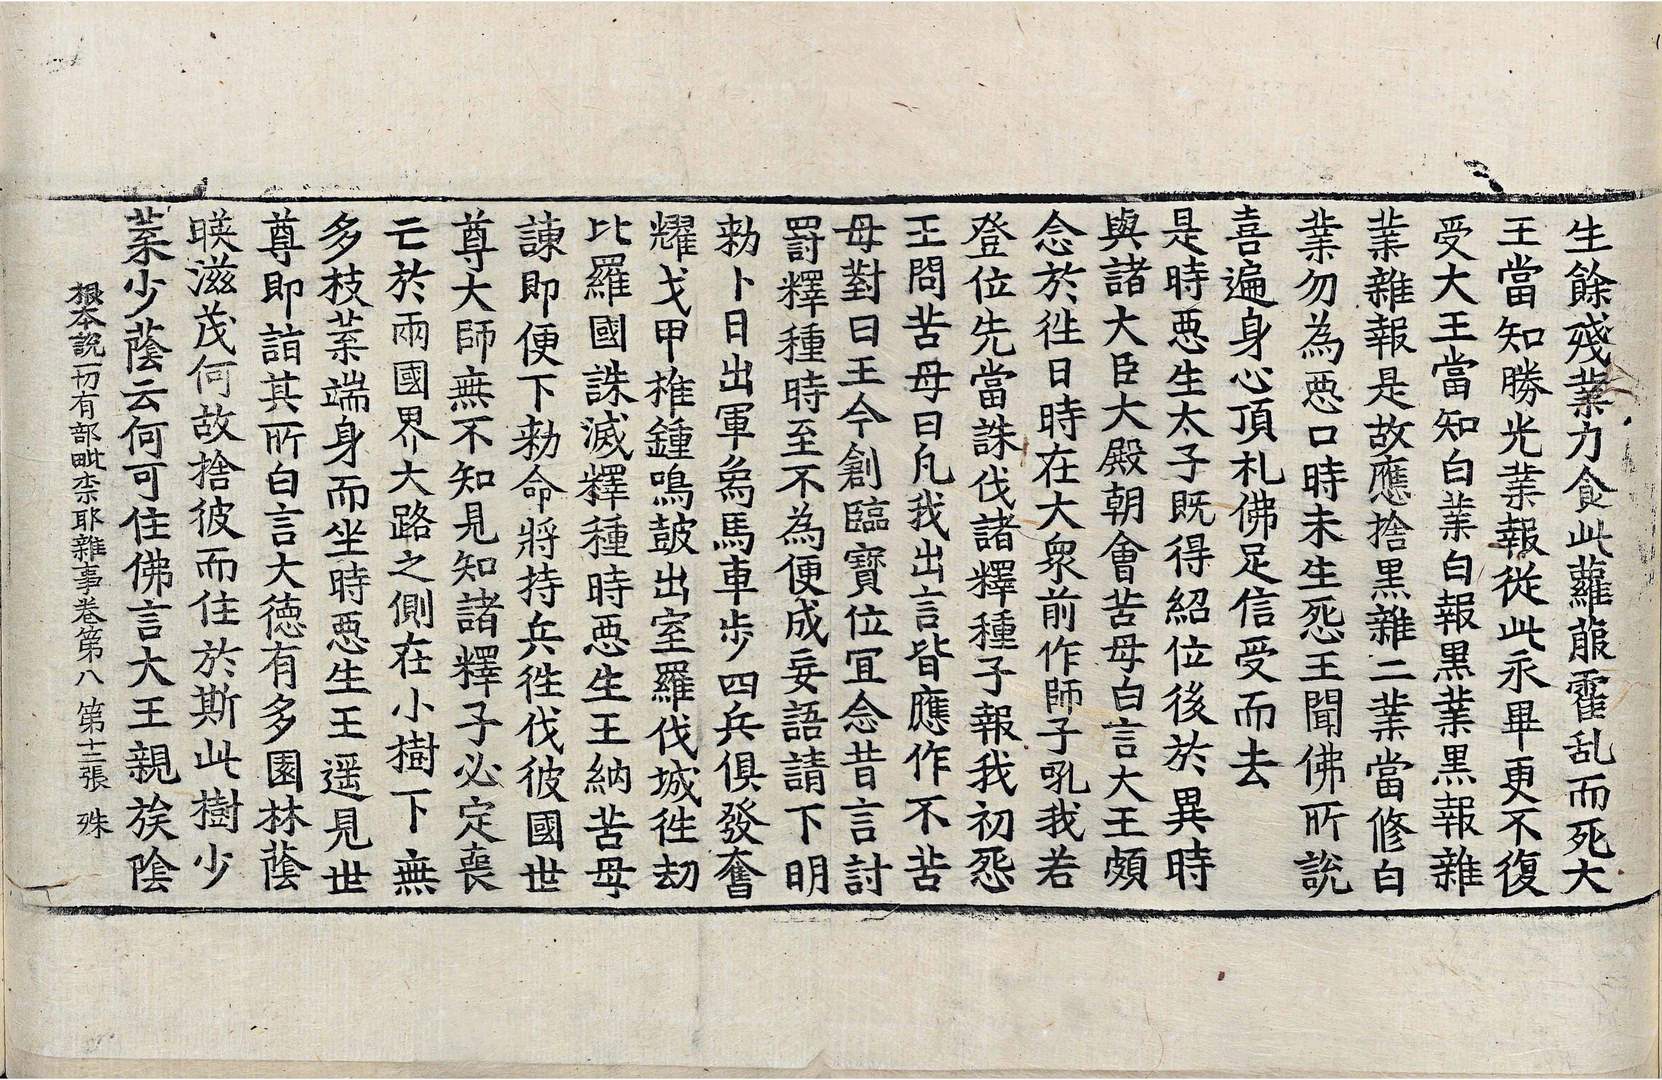 生餘殘業力食此蘿菔霍乱而死大
王當知勝光業報從此永畢更不復
受大王當知白業白報黒業黒報雜
業雜報是故應捨黒雜二業當修白
業勿為惡口時未生怨王聞佛所說
喜遍身心頂札佛足信受而去
是時惡生太子既得紹位後於異時
與諸大臣大殿朝會苦母白言大王頗
念於徃日時在大衆前作師子吼我若
登位先當誅伐諸釋種子報我初怨
王問苦母曰凡我出言皆應作不苦
母對曰王今創臨寶位宜念昔言討
罸釋種時至不為便成妄語請下明
勑卜日出軍爲馬車步四兵俱發奮
耀戈甲椎鍾鳴皷出室羅伐城徃刼
比羅國誅滅釋種時惡生王納苦母
諫即便下勑命將持兵徃伐彼國世
尊大師無不知見知諸釋子必定喪
亡於兩國界大路之側在小樹下無
多枝葉端身而坐時惡生王遥見世
尊即詣其所白言大徳有多園林蔭
暎滋茂何故捨彼而住於斯此樹少
葉少蔭云何可住佛言大王親族陰
根本說一切有部毗柰耶雜事卷第八 第十二張 殊